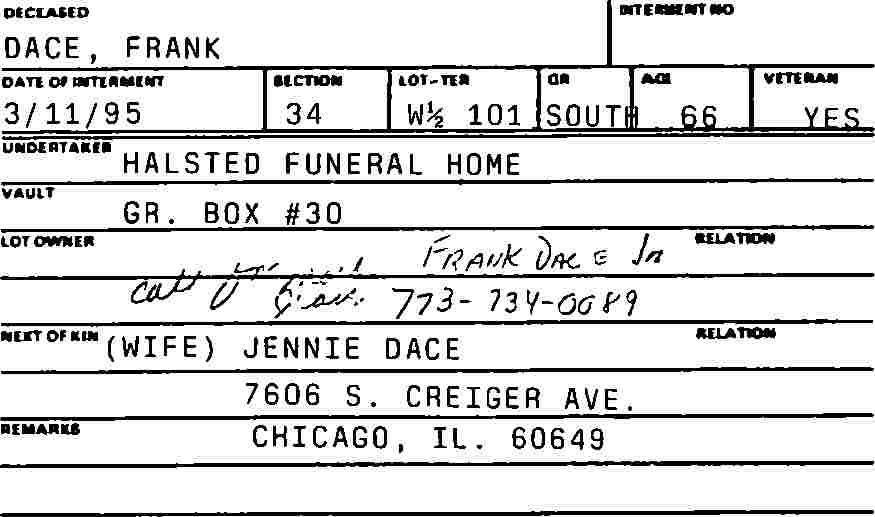 DECEASED INTERMENT NO
DACE, FRANK
DATE OF INTERMENT SECTION LOT-TER GR AGE VETERAN
3/11/95 34 W½ 101 SOUTH 66 YES
UNDERTAKER HALSTED FUNERAL HOME
VAULT
GR. BOX #30
LOT OWNER FRANK DACE Jr RELATION
call 773-734-0089
NEXT OF KIN (WIFE) JENNIE DACE RELATION
7606 S. CREIGER AVE.
REMARKS CHICAGO, IL. 60649